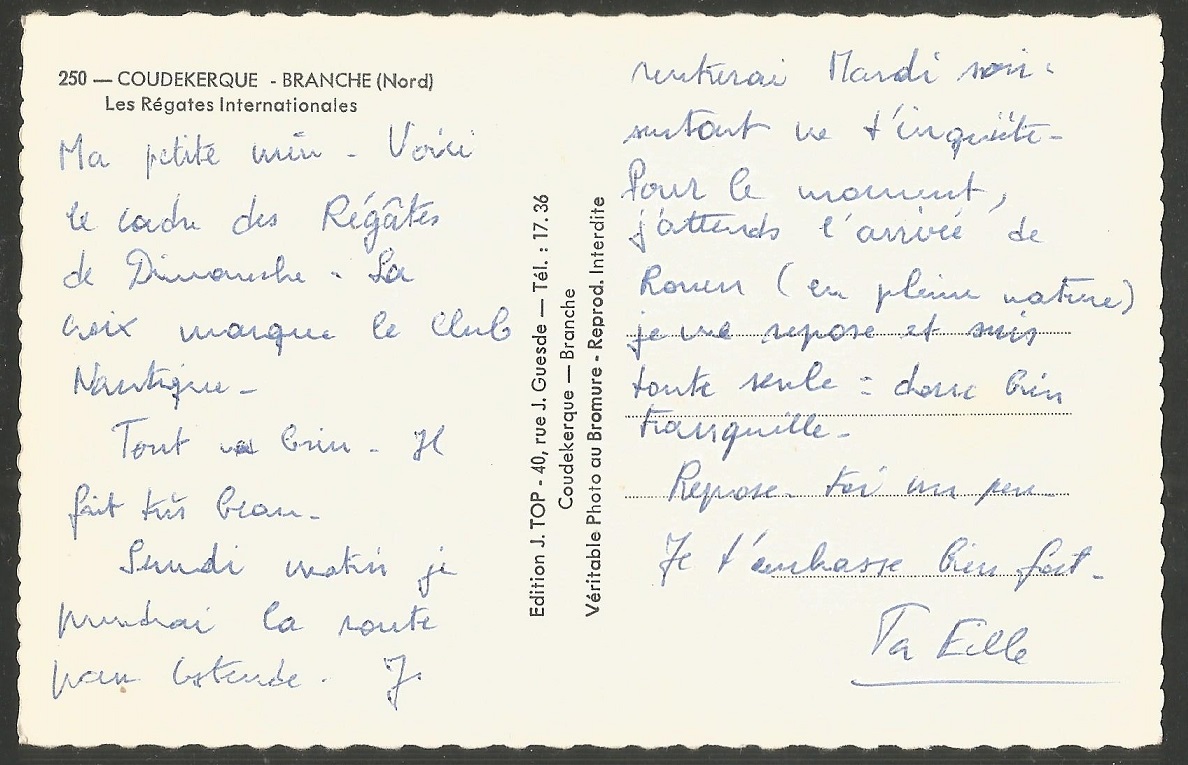 250 — COUDEKERQUE - BRANCHE (Nord)
Les Régates Internationales
Ma petite min - Voici
le cadre des Régâtes
de Dimanche - La
croix marque le Club
Nautique -
Tout va bien - Il
fait très beau -
Lundi matin je
prendrai la route
pour Ostende. J
Edition J. TOP - 40, rue J. Guesde — Tél. : 17.36
Coudekerque — Branche
Véritable Photo au Bromure - Reprod. Interdite
rentrerai Mardi soir.
surtout ne t'inquiète -
Pour le moment,
j'attends l'arrivée de
Rouen (en pleine nature)
je me repose et suis
toute seule : donc bien
tranquille -
Repose-toi un peu -
Je t'embrasse bien fort -
Ta Fille